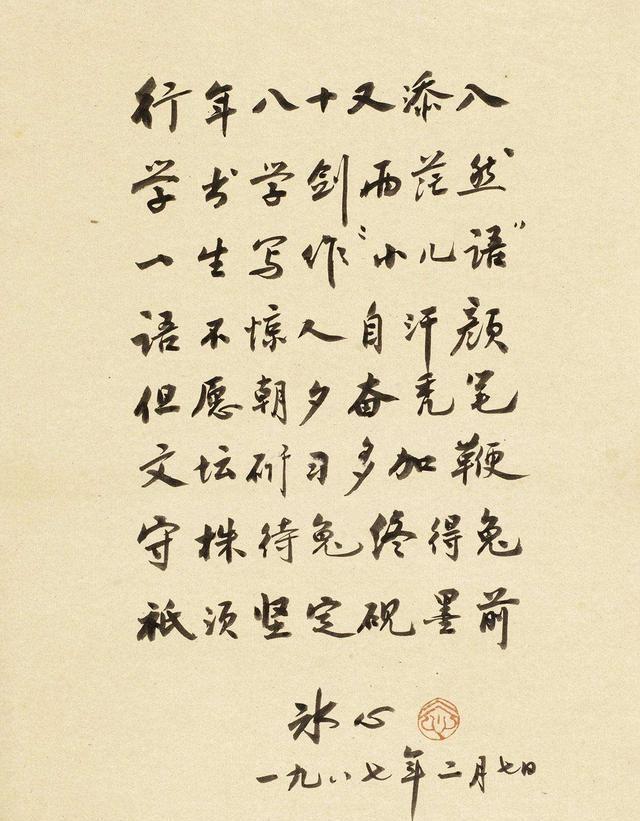 行年八十又添八
学书学剑两茫然
一生写作“小儿语”
语不惊人自汗颜
但愿朝夕奋秃笔
文坛研习多加鞭
守株待兔终得兔
祇须坚定砚墨前
冰心
一九八七年二月七日